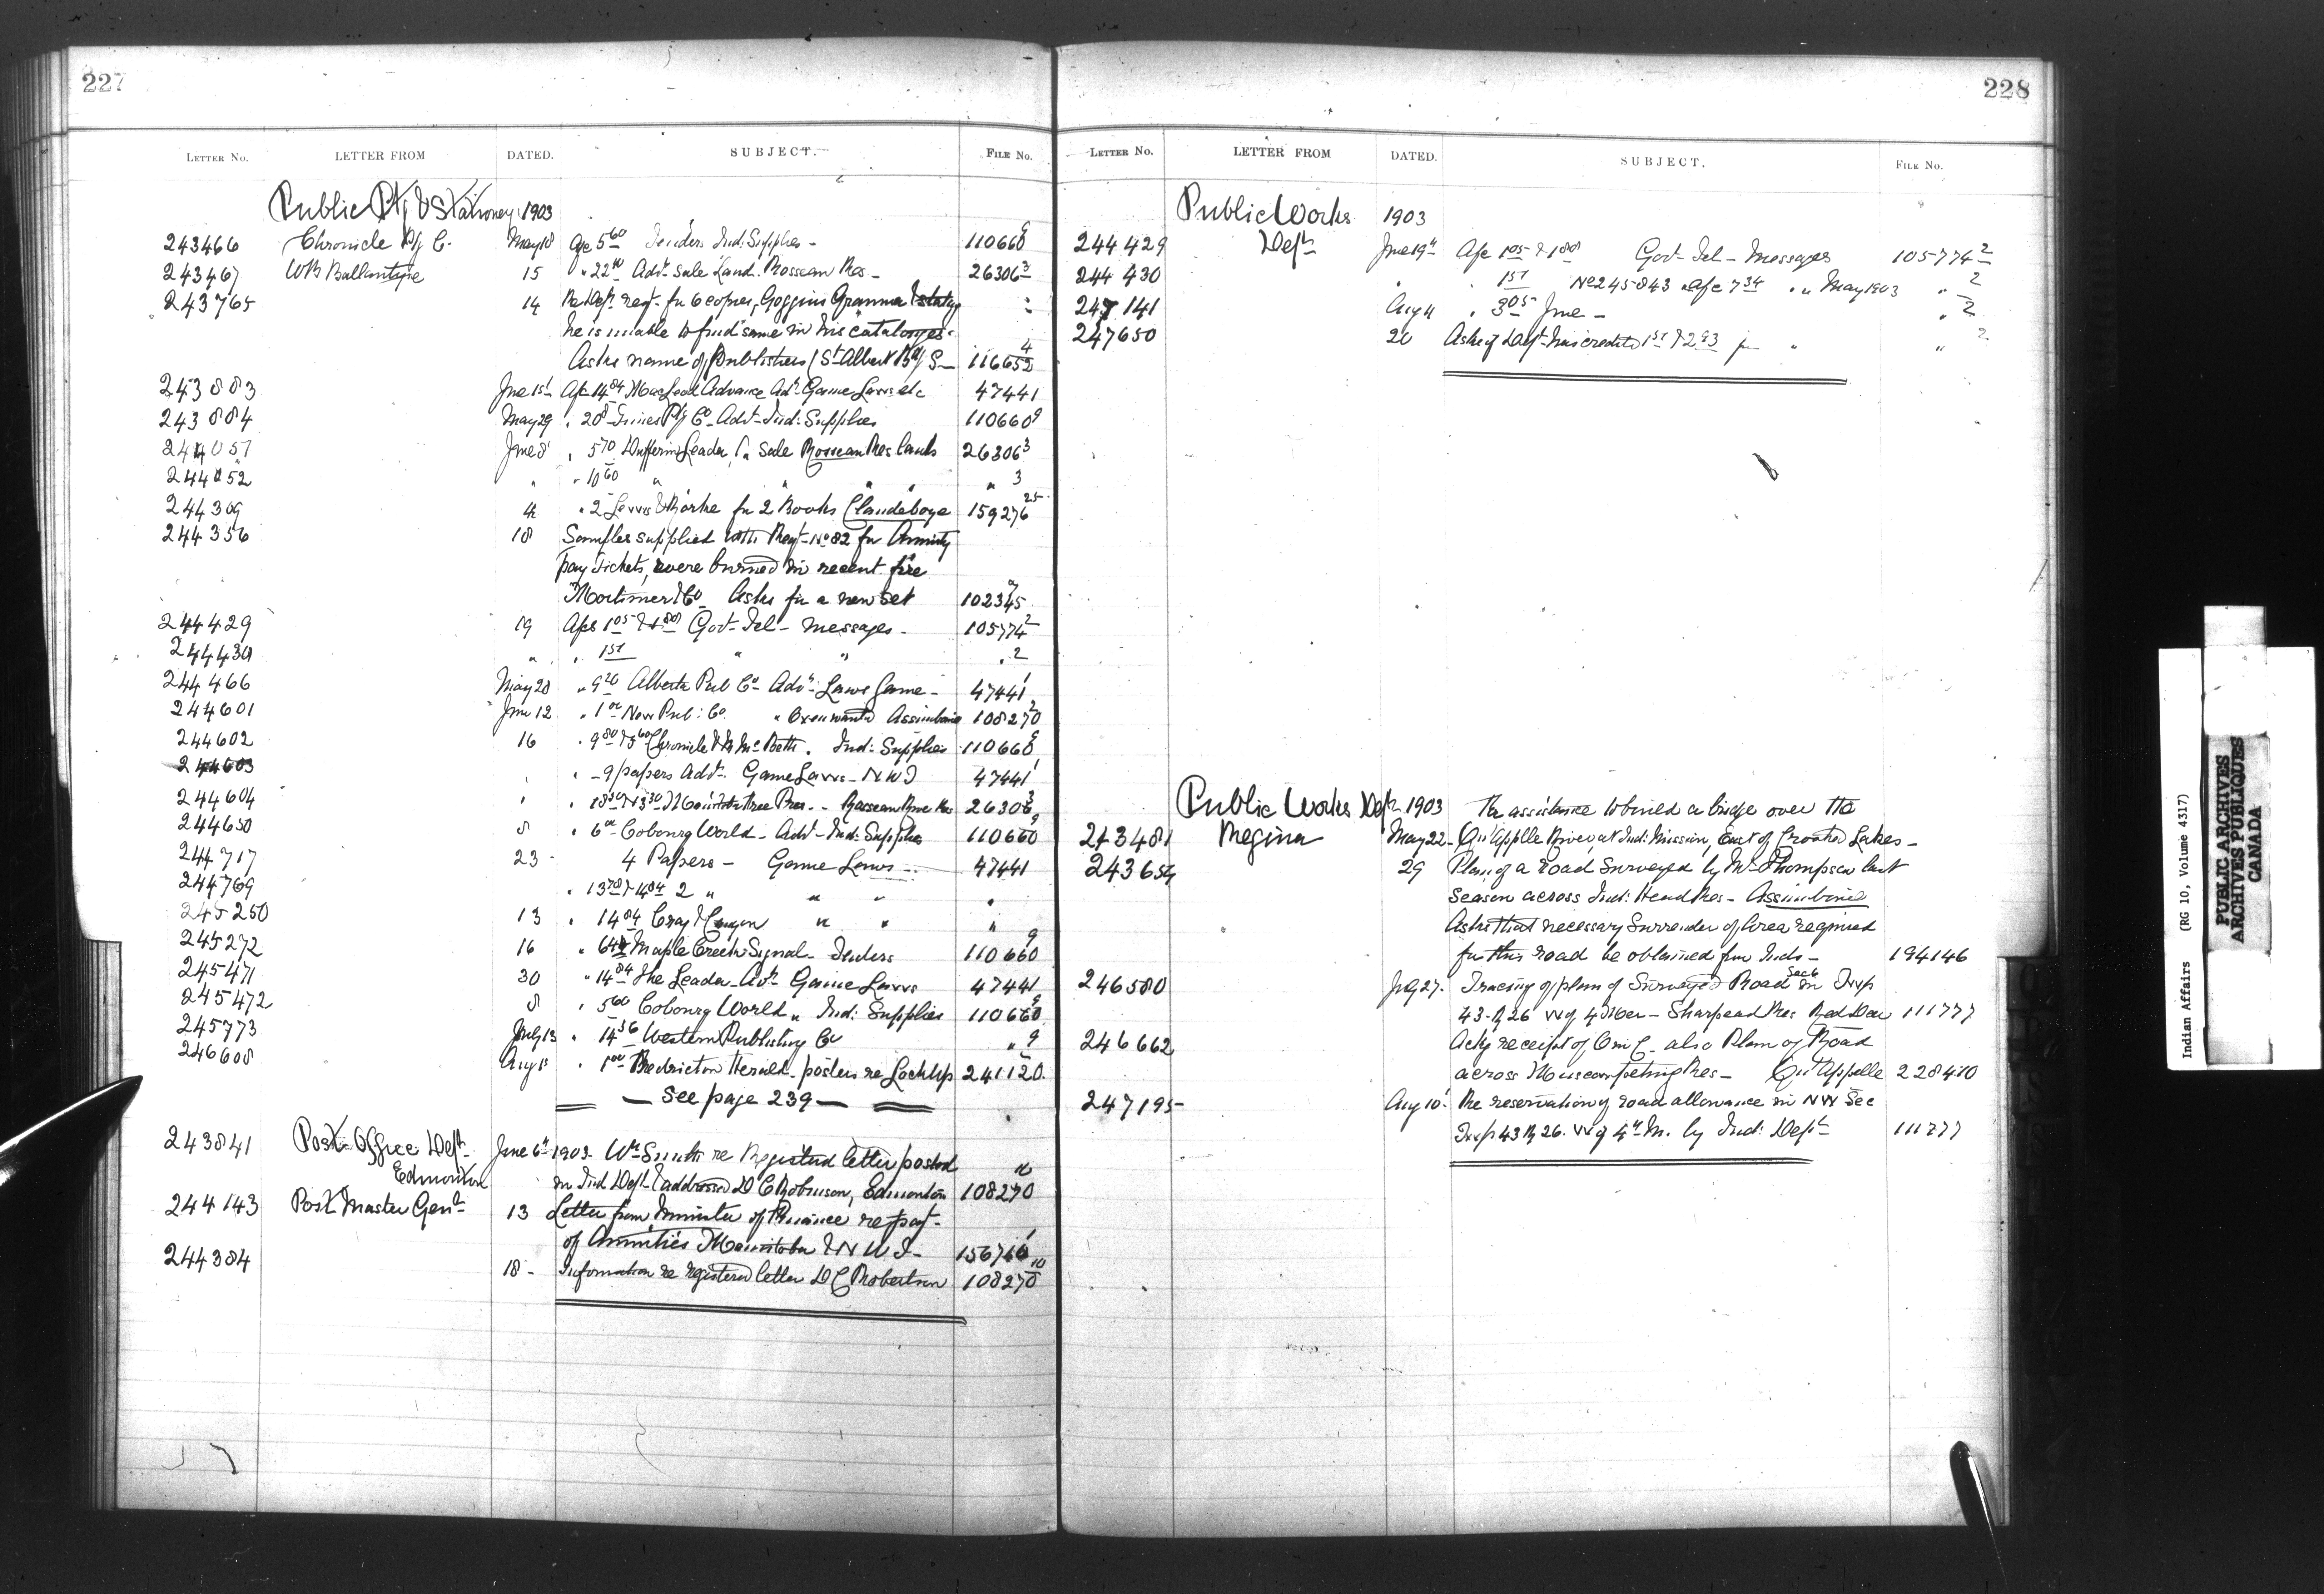 227
LETTER NO. LETTER FROM DATED. SUBJECT. FILE No.
Public Ptg & Stationery 1903
243466 Chronicle Ptg C. May 18 Apc 5 60 Tenders Ind: Supplies - 110660 9
243467 WB Ballantyne 15 " 22 Advt Sale Land. Rosseau Res - 26306 3
243765 14 Re Dept reqt. for 6 copies, Goggins Grammar & states "
he is unable to find same in his catalogues.
Asks name of Publishers (St Albert Bdg S- 116652 4
243883 June 1st Apc 14 84 MacLeod Advance Advt Game Laws etc 47441
243884 May 29 " 20 8 Times Ptg Co Advt Ind: Supplies 110660 9
244051 June 8 " 5 70 Dufferin Leader " Sale Rosseau Res lands 26306 3
244052 " " 10 60 " " " " " 3
244309 4 " 2 Lewis & Rorke for 2 Books Clandeboye 159276 25
244356 18 Samples supplied with Reqt No 82 for Annuity
pay tickets, were burned in recent fire
Mortimer & Co Asks for a new set 102345
244429 19 Apcs 1 05 & 1 80 Govt Tel - messages - 105774 2
244430 " " 1 51 " " " 2
244466 May 28 " 9 20 Alberta Pub Co Advt Laws Game - 47441 1
244601 June 12 " 1 00 New Pub: Co " Assiniboine 108270
244602 16 " 9 80 & 5 60 Chronicle & McBeth. Ind: Supplies 110660 9
244603 " " - 9 papers Advt. Game Laws - N W T 47441 1
244604 " " Free Pres. - Rosseau River Res 26306 3
244650 8 " 6 00 Cobourg World - Advt - Ind: Supplies 110660 9
244717 23 - 4 Papers - Game Laws - 47441
244769 " 2 " " " "
245250 13 " 14 84 " " "
245272 16 " Maple Creek Signal - Tenders 110660 9
245471 30 " 14 84 The Leader - Advt Game Laws 47441
245472 8 " 5 60 Cobourg World " Ind: Supplies 110660 9
245773 July 13 " 14 36 Western Publishing Co " 9
246608 Aug 1 " 1 00 Fredricton Herald - posters re Lockup 241120
— See page 239 —
243841 Post Office Dept June 6th 1903. Wm Smith re Registered letter posted
Edmonton in Ind Dept (addressed D C Robinson, Edmonton 108270
244143 Post Master Genl 13 Letter from Minister of Finance re payt.
of Annuities Manitoba & N W T - 156710 1
244384 18 - Information re registered letter D C Robertson 108270 10
228
LETTER No. LETTER FROM DATED. SUBJECT. FILE No.
Public Works 1903
244429 Dept June 19th Apc 1 05 & 1 80 Govt Tel - Messages 105774 2
244430 " 1 51 No 245843 " Apc 7 34 " " May 1903 " 2
247141 Aug 11 " 3 05 June - " 2
247650 20 Asks if Dept has credited 1 51 & 2 93 for " " 2
Public Works Dept 1903 Re assistance to build a bridge over the
243481 Regina May 22 - Qu'Appelle River, at Ind: Mission, East of Crooked Lakes -
243654 29 Plan of a road surveyed by Mr Thompson last
season across Ind: Head Res - Assiniboine
Asks that necessary Surrender of Area required
for this road be obtained from Inds - 194146
246580 July 27. Tracing of plan of Surveyed Road in Sec 6 Twp
43 - R 26 W of 4 Mer - Sharphead Res Red Deer 111777
246662 Ackg receipt of Om C. also Plan of Road
across Muscowpetung Res - Qu'Appelle 228410
247195 Aug 10. Re reservation of road allowance in NW Sec
Twp 43 R 26. W of 4th M. by Ind: Dept 111777
Indian Affairs (RG 10, Volume 4317)
PUBLIC ARCHIVES
ARCHIVES PUBLIQUES
CANADA